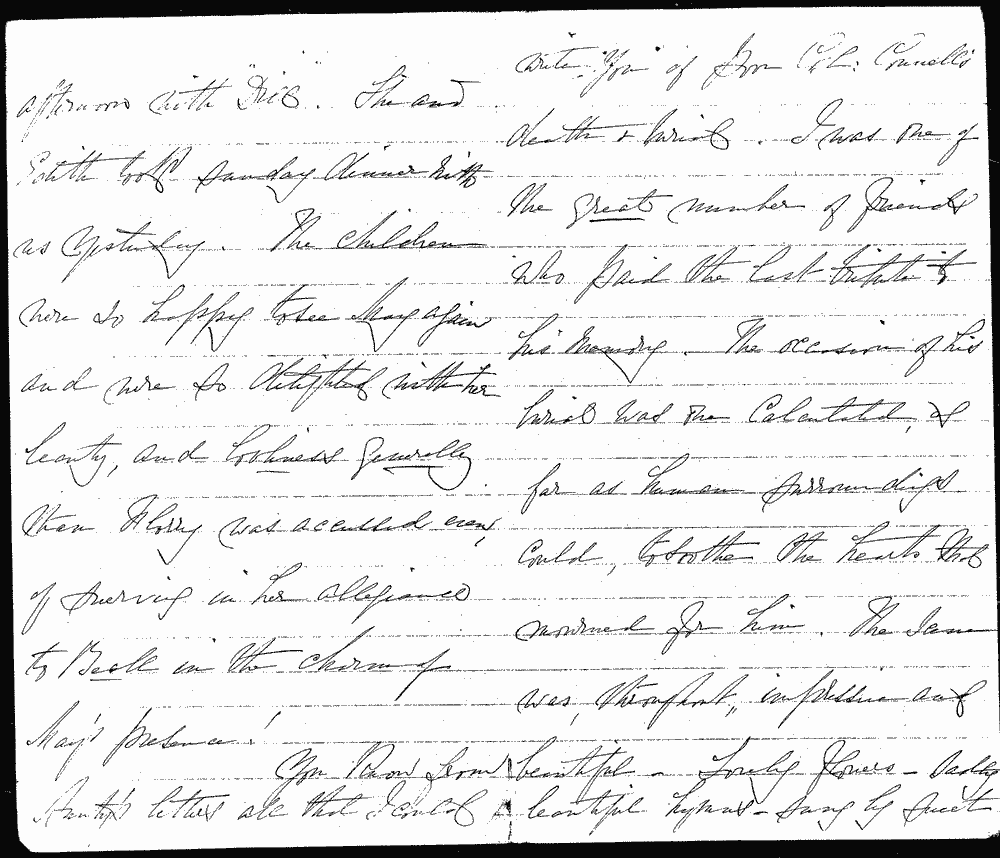 afternoon with "Dis". She and
Edith took Sunday dinner with
us yesterday. The children
were so happy to see May again
and were so delighted with her
beauty, and loveliness generally
then Florry was accused even,
of swerving in her allegiance
to Beall in the charm of
May's presence!
You know from
Aunty's letters all that I could
write you of poor Col: Connell's
death & burial. I was one of
the great number of friends
who paid the last tribute to
his memory. The occasion of his
burial was one calculated, as
far as human surroundings
could, to soothe the hearts that
mourned for him. The scene
was, throughout, impressive and
beautiful - lovely flowers - sadly
beautiful hymns - sung by sweet